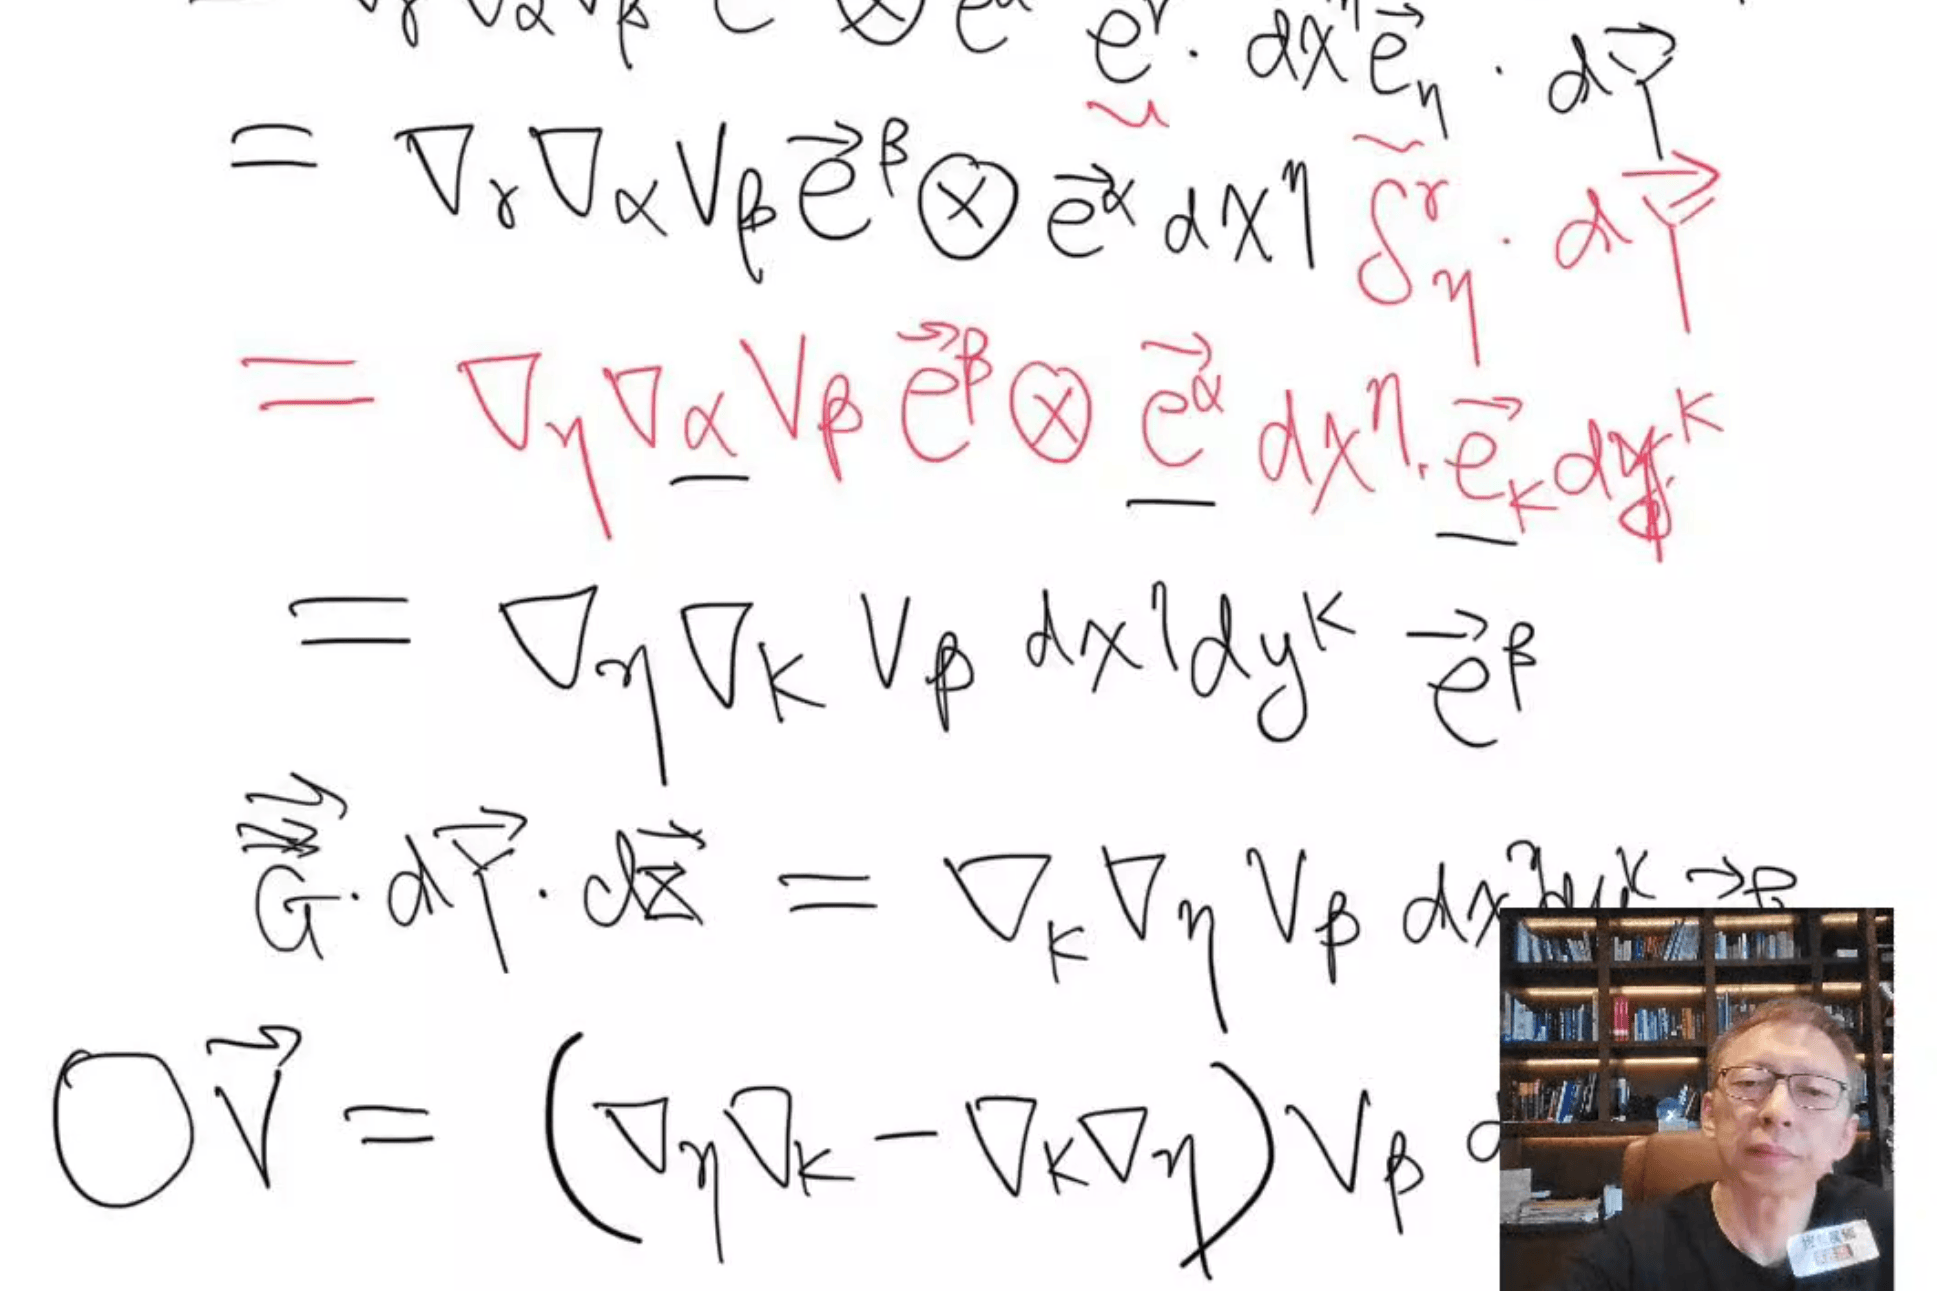 = ∇_γ ∇_α V_β e⃗^β ⊗ e⃗^α e⃗^γ · dx^η e⃗_η · dY⃗
= ∇_γ ∇_α V_β e⃗^β ⊗ e⃗^α dx^η δ^γ_η · dY⃗
= ∇_η ∇_α V_β e⃗^β ⊗ e⃗^α dx^η · e⃗_K dy^K
= ∇_η ∇_K V_β dx^η dy^K e⃗^β
G · dY⃗ · dz⃗ = ∇_K ∇_η V_β dx^η dy^K
O V⃗ = (∇_η ∇_K − ∇_K ∇_η) V_β d